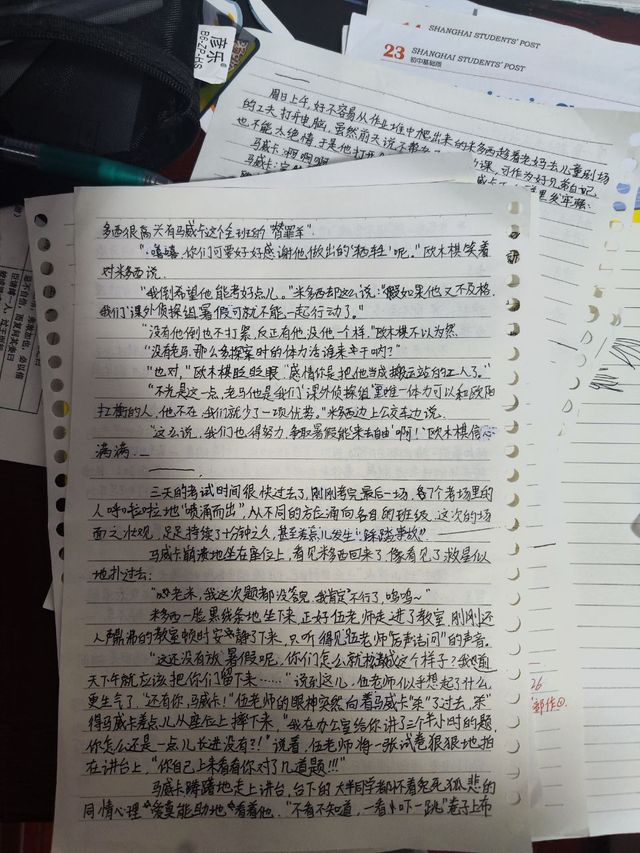 彦乐
B6-ZP-HS
SHANGHAI STUDENTS' POST
23 SHANGHAI STUDENTS' POST
初中基础版
周日上午,好不容易从作业堆中爬出来的米多西趁着老妈去儿童剧场
的工夫打开电脑,虽然雨天说不
课,可作为好兄弟自己
也不能太绝情,于是他打开
马威卡:啊啊啊
多西很高兴有马威卡这个全班的“替罪羊”
“嘻嘻,你们可要好好感谢他做出的‘牺牲’呢。”欧木棋笑着
对米多西说。
“我倒希望他能考好点儿。”米多西却这么说:“假如果他又不及格,
我们‘课外侦探组’暑假可就不能一起行动了。”
“没有他倒也不打紧,反正有他没他一个样。”欧木棋不以为然
“没有老马,那么多探案时的体力活谁来干呐?”
“也对,”欧木棋眨眨眼,“感情你是把他当成搬运站的工人了。”
“不光是这一点,老马他是我们‘课外侦探组’里唯一体力可以和欧阳
扛衡的人,他不在我们就少了一项优势。”米多西边上公交车边说。
“这么说,我们也得努力,争取暑假能‘来去自由’啊!”欧木棋信心
满满……
三天的考试时间很快过去了,刚刚考完最后一场,各个考场里的
人呼啦啦地“喷涌而出”,从不同的方位涌向各自的班级,这次的场
面之壮观,足足持续了十分钟之久,甚至差点儿发生“踩踏事故”
马威卡崩溃地坐在座位上,看见米多西回来了,像看见了救星似
地扑过去:
老米,我这次题都没答完,我肯定不行了,呜呜~”
米多西一脸黑线条地坐下来,正好伍老师走进了教室,刚刚还
人声鼎沸的教室顿时安静了下来,只听得见伍老师“厉声诘问”的声音。
“这还没有放暑假呢,你们怎么就松散成这个样子?我前
天下午就应该把你们留下来……”说到这儿,伍老师似乎想起了什么,
更生气了,“还有你,马威卡!”伍老师的眼神突然向着马威卡“杀”了过去,“杀”
得马威卡差点儿从座位上摔下来,“我在办公室给你讲了三个半小时的题,
你怎么还是一点儿长进没有?!”说着,伍老师将一张试卷狠狠地拍
在讲台上,“你自己上来看看你对了几道题!!!”
马威卡蹒跚地走上讲台,台下的大半同学都怀着兔死狐悲的
同情心理“爱莫能助地”看着他,“不看不知道,一看吓一跳”卷子上布
26